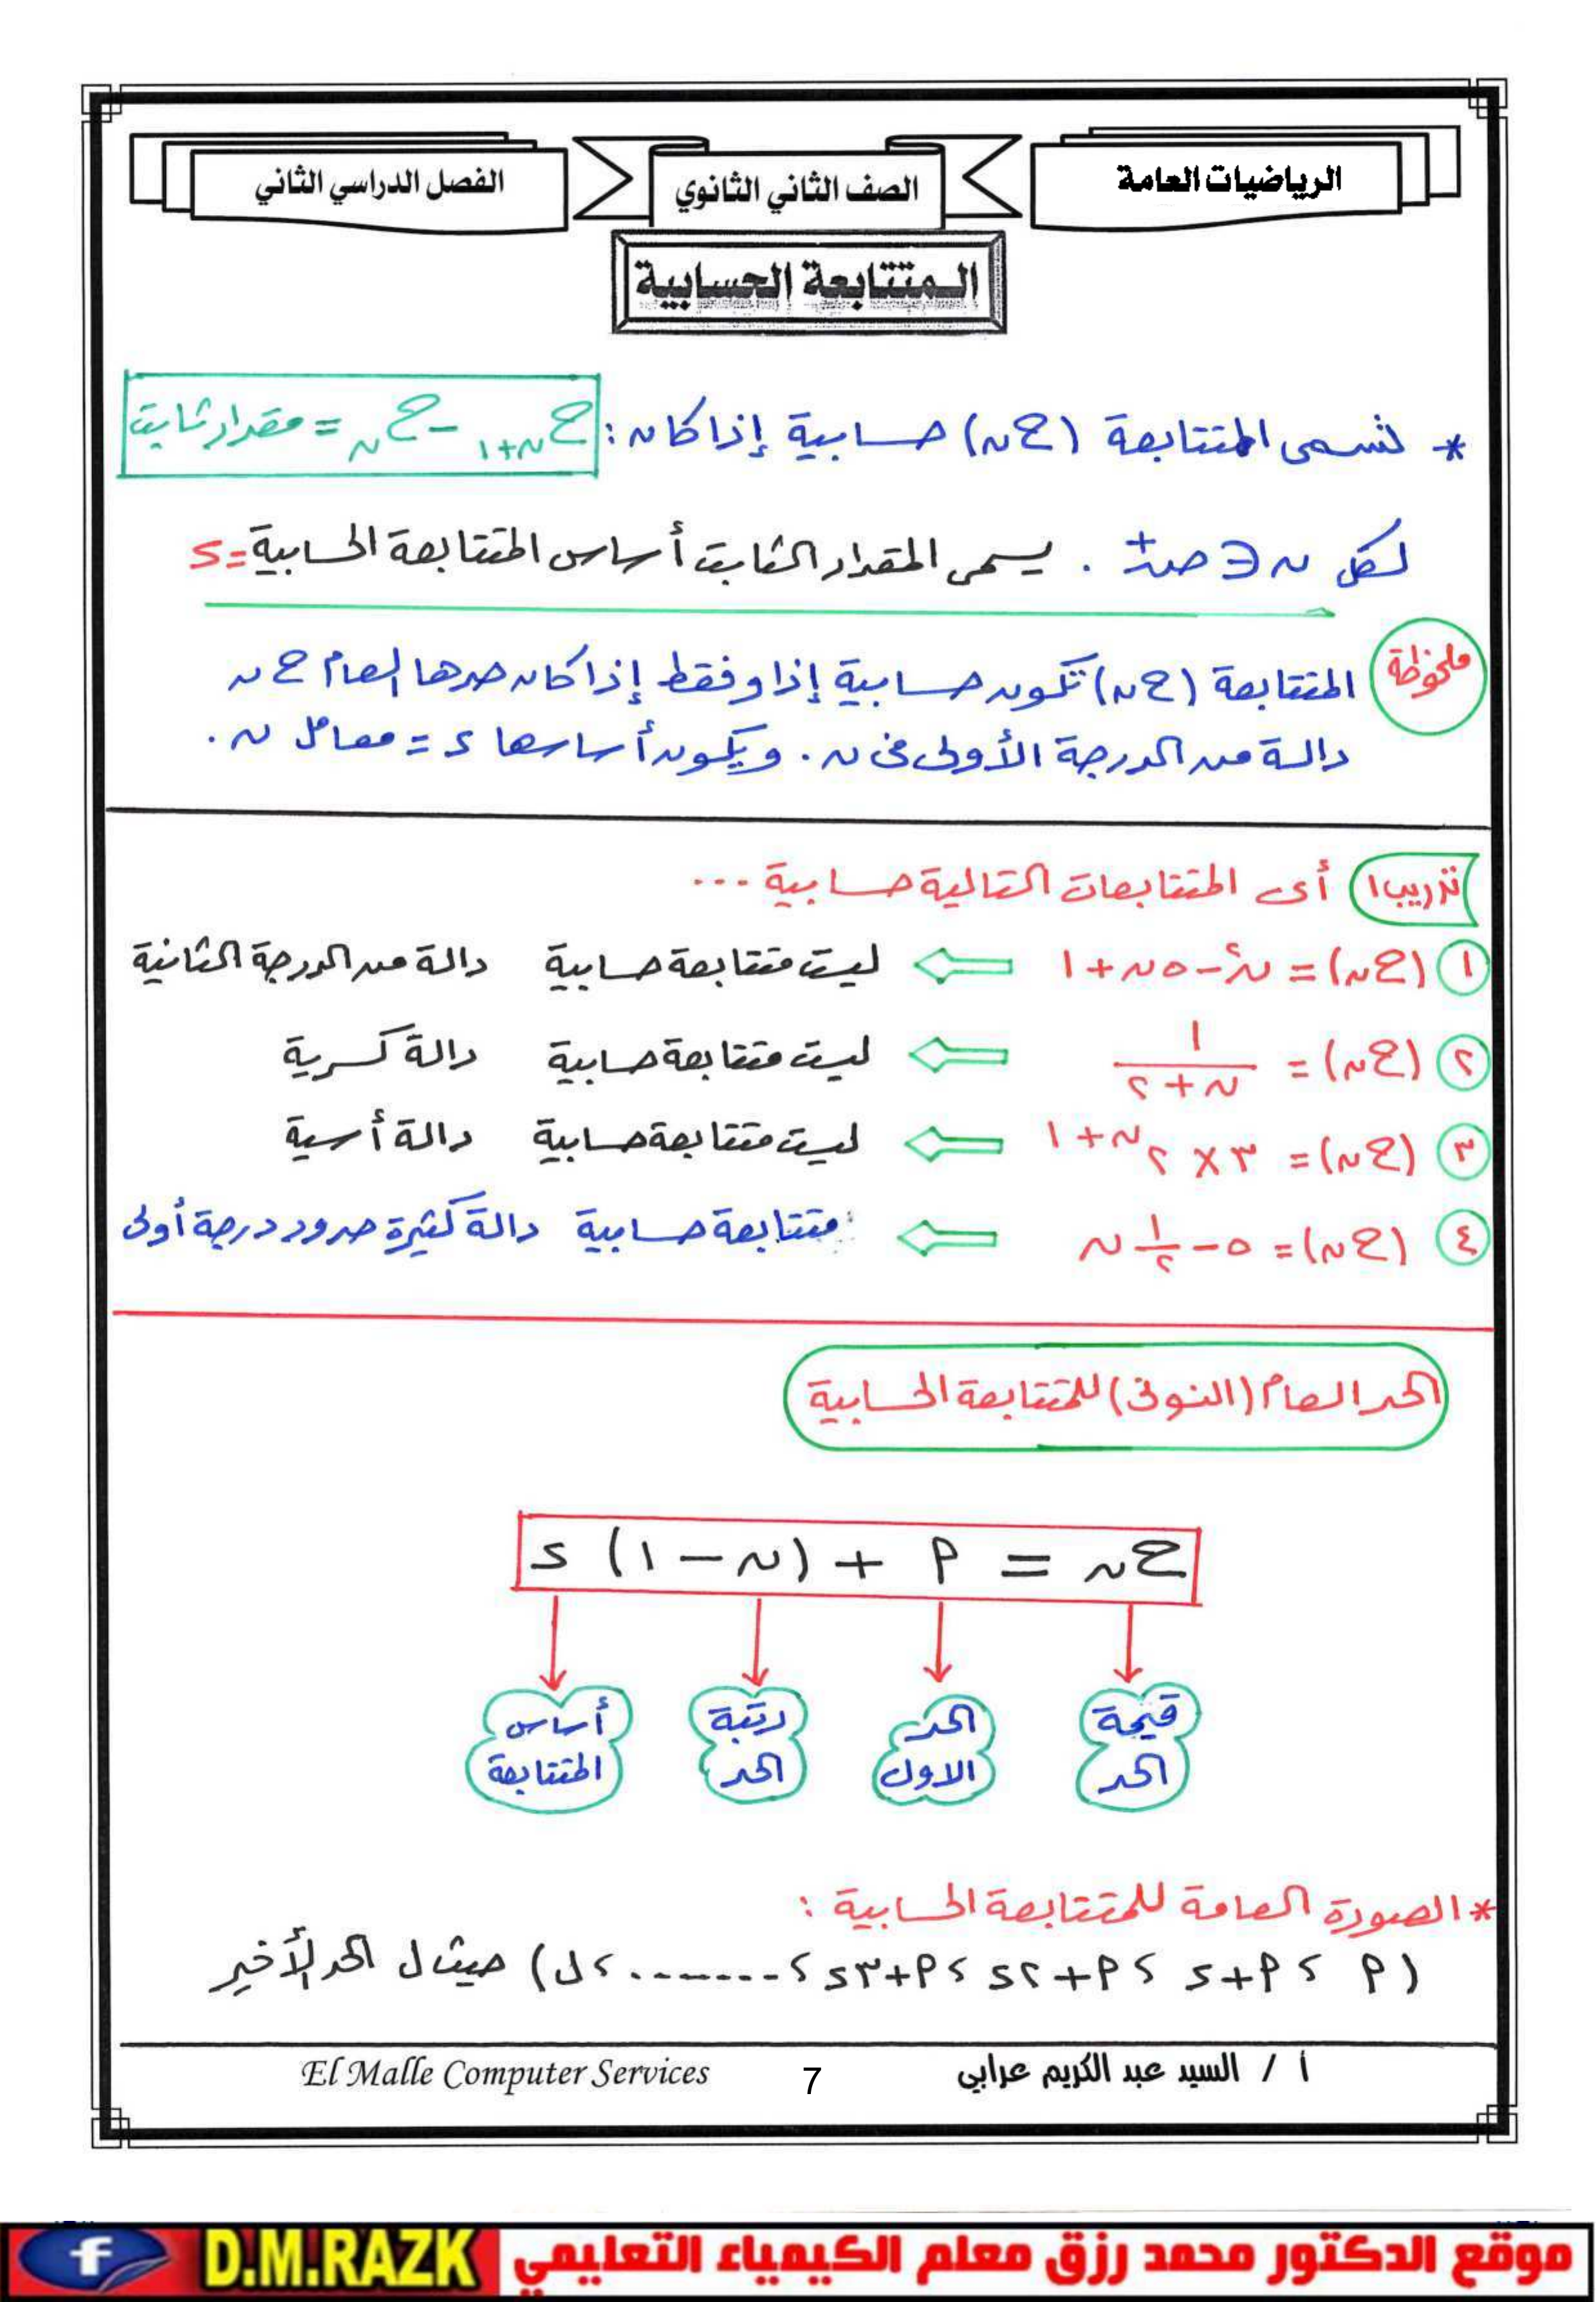 الرياضيات العامة
الصف الثاني الثانوي
الفصل الدراسي الثاني
المتتابعة الحسابية
* تسمى المتتابعة (ح ن) حسابية إذا كان : ح ن+١ - ح ن = مقدار ثابت
لكل ن ∈ صـ+ . يسمى المقدار الثابت أساس المتتابعة الحسابية = د
ملحوظة المتتابعة (ح ن) تكون حسابية إذا وفقط إذا كان حدها العام ح ن
دالة من الدرجة الأولى في ن . ويكون أساسها د = معامل ن .
تدريب١ أى المتتابعات التالية حسابية ...
١ (ح ن) = ن² - ٥ن + ١ ⇐ ليست متتابعة حسابية دالة من الدرجة الثانية
٢ (ح ن) = ١/(ن + ٢) ⇐ ليست متتابعة حسابية دالة كسرية
٣ (ح ن) = ٣ × ٢^(ن + ١) ⇐ ليست متتابعة حسابية دالة أسية
٤ (ح ن) = ٥ - ١/٢ ن ⇐ متتابعة حسابية دالة كثيرة حدود درجة أولى
الحد العام (النوني) للمتتابعة الحسابية
ح ن = أ + (ن - ١) د
قيمة الحد
الحد الاول
رتبة الحد
أساس المتتابعة
* الصورة العامة للمتتابعة الحسابية :
(أ ، أ+د ، أ+٢د ، أ+٣د ، ------- ، ل) حيث ل الحد الأخير
أ / السيد عبد الكريم عرابي
7
El Malle Computer Services
موقع الدكتور محمد رزق معلم الكيمياء التعليمي
D.M.RAZK
f